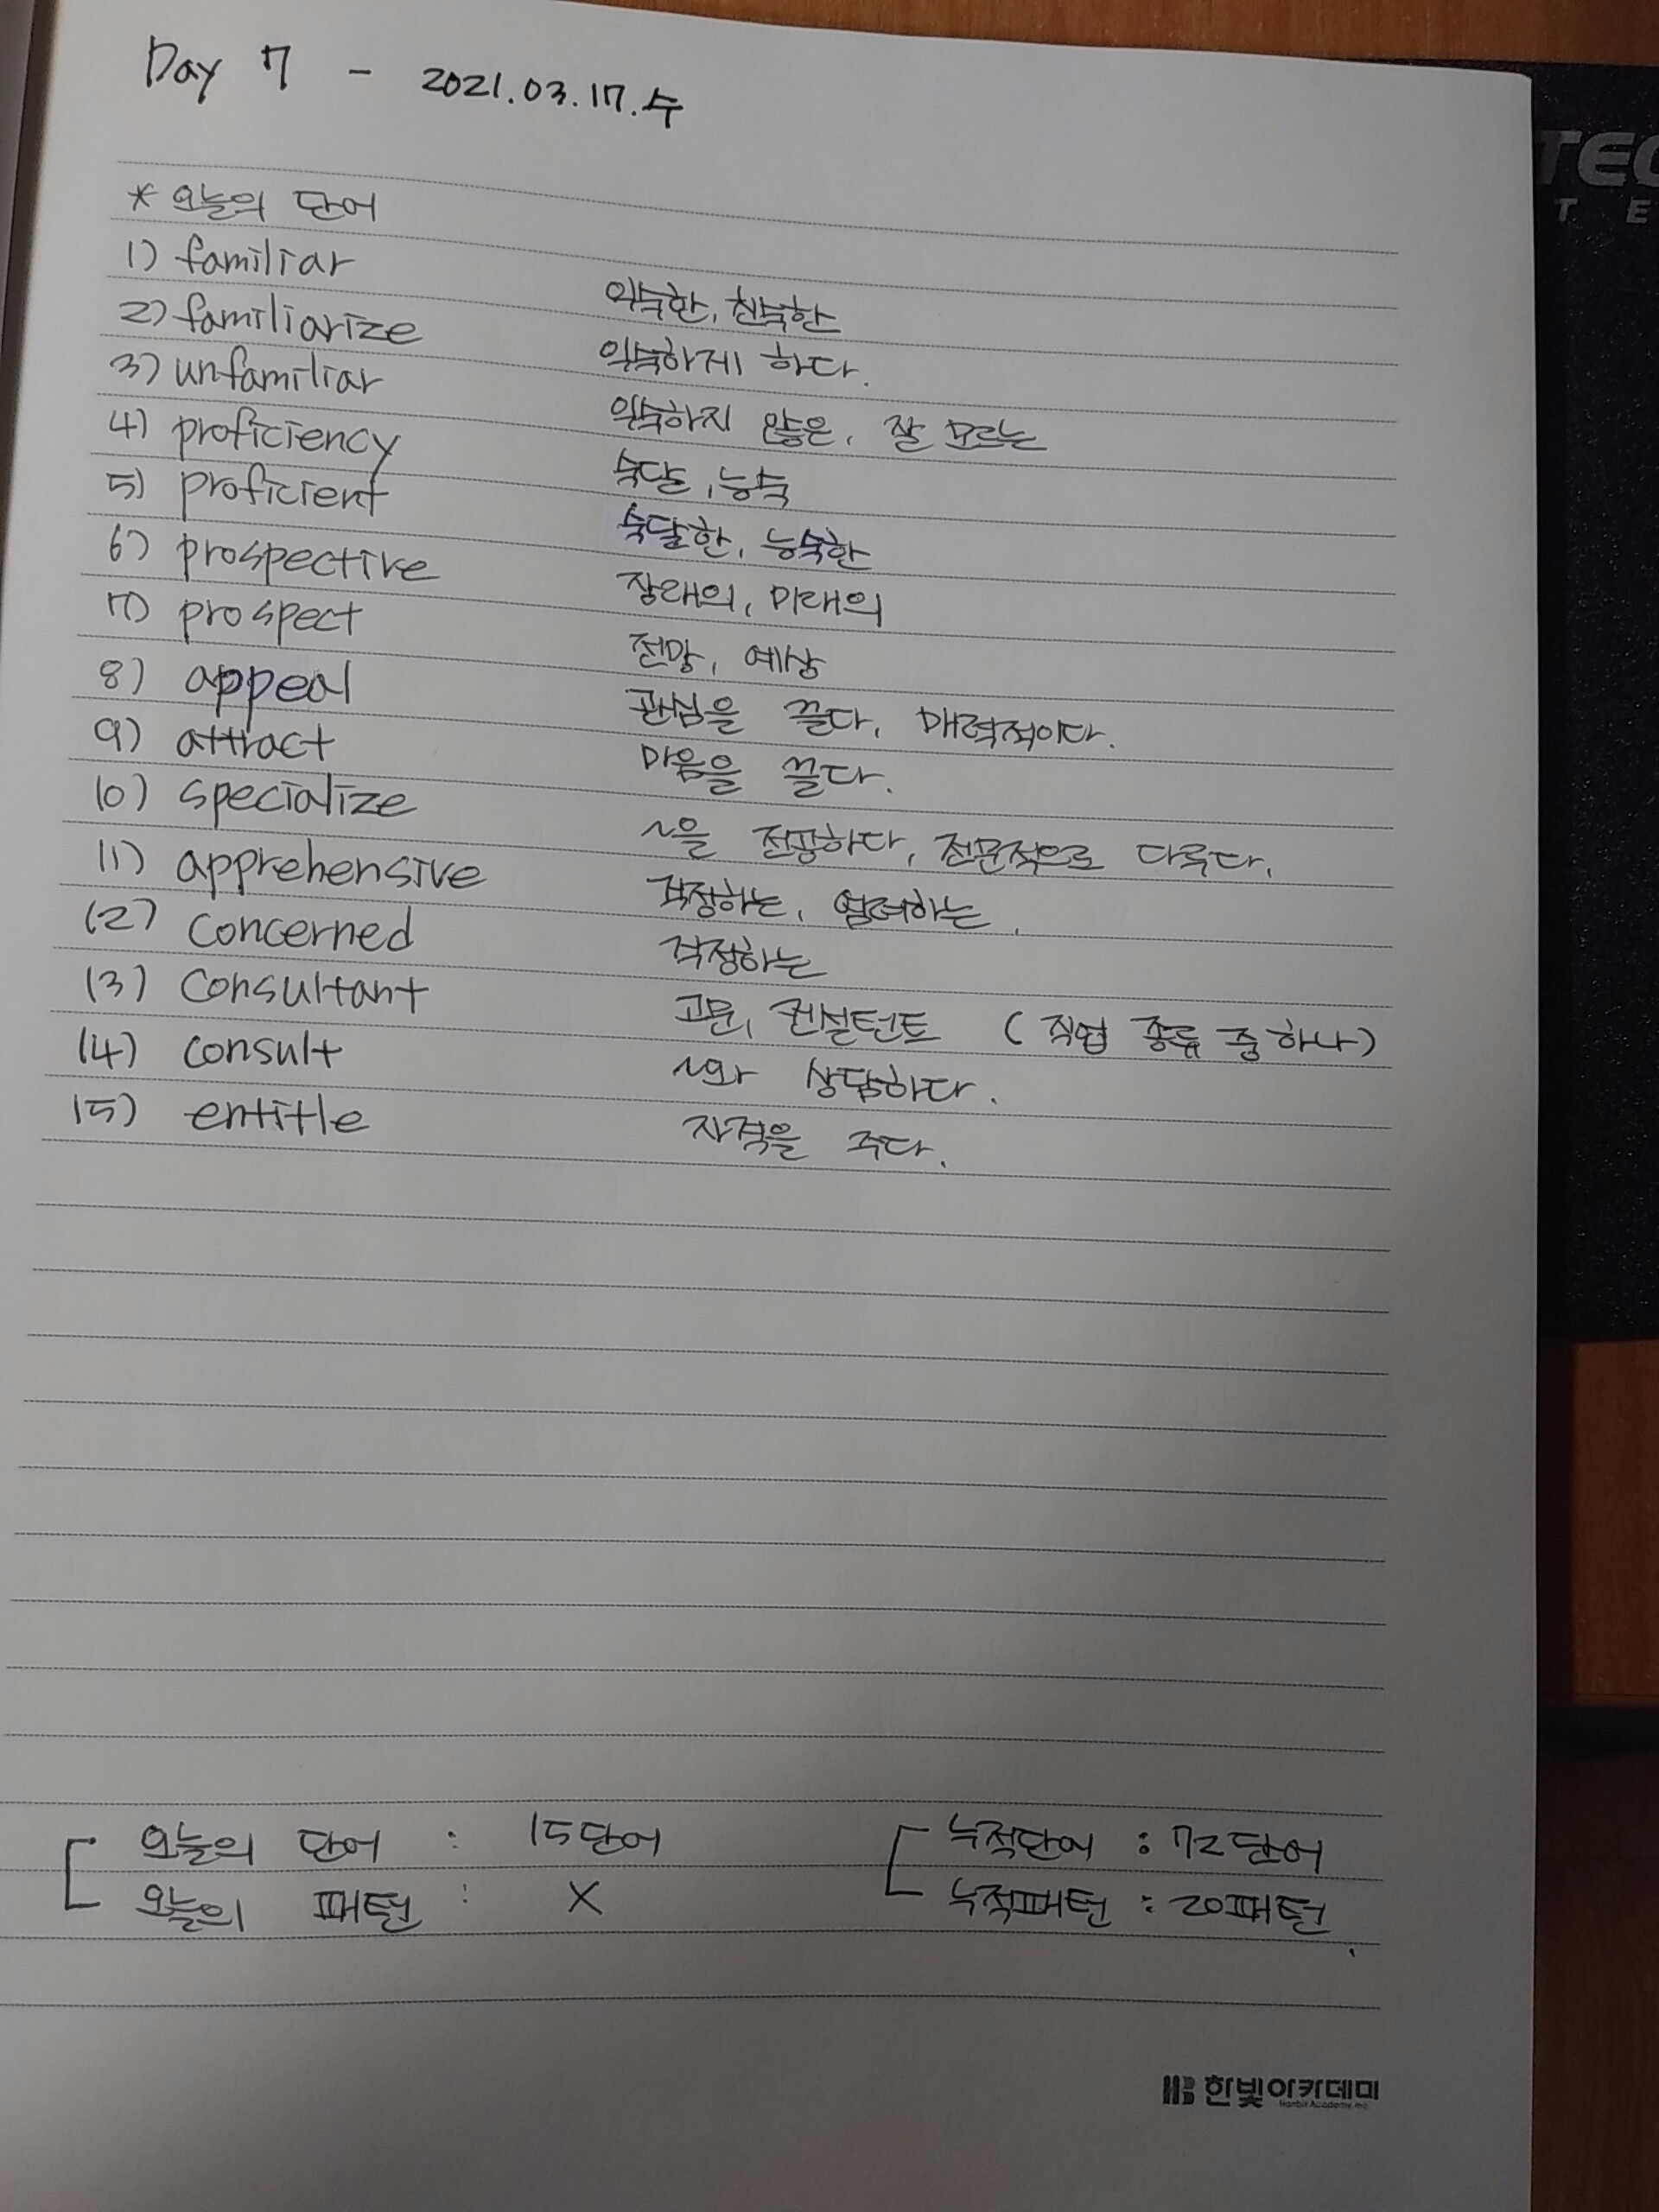 Day 7 - 2021.03.17.수
* 오늘의 단어
1) familiar 익숙한, 친숙한
2) familiarize 익숙하게 하다.
3) unfamiliar 익숙하지 않은, 잘 모르는
4) proficiency 숙달, 능숙
5) proficient 숙달한, 능숙한
6) prospective 장래의, 미래의
7) prospect 전망, 예상
8) appeal 관심을 끌다, 매력적이다.
9) attract 마음을 끌다.
10) specialize ~을 전공하다, 전문적으로 다루다.
11) apprehensive 걱정하는, 염려하는.
12) concerned 걱정하는
13) consultant 고문, 컨설턴트 (직업 종류 중 하나)
14) consult ~와 상담하다.
15) entitle 자격을 주다.
오늘의 단어 : 15단어 누적단어 : 72단어
오늘의 패턴 : X 누적패턴 : 20패턴.
한빛아카데미
Hanbit Academy, Inc.
TEC
T E